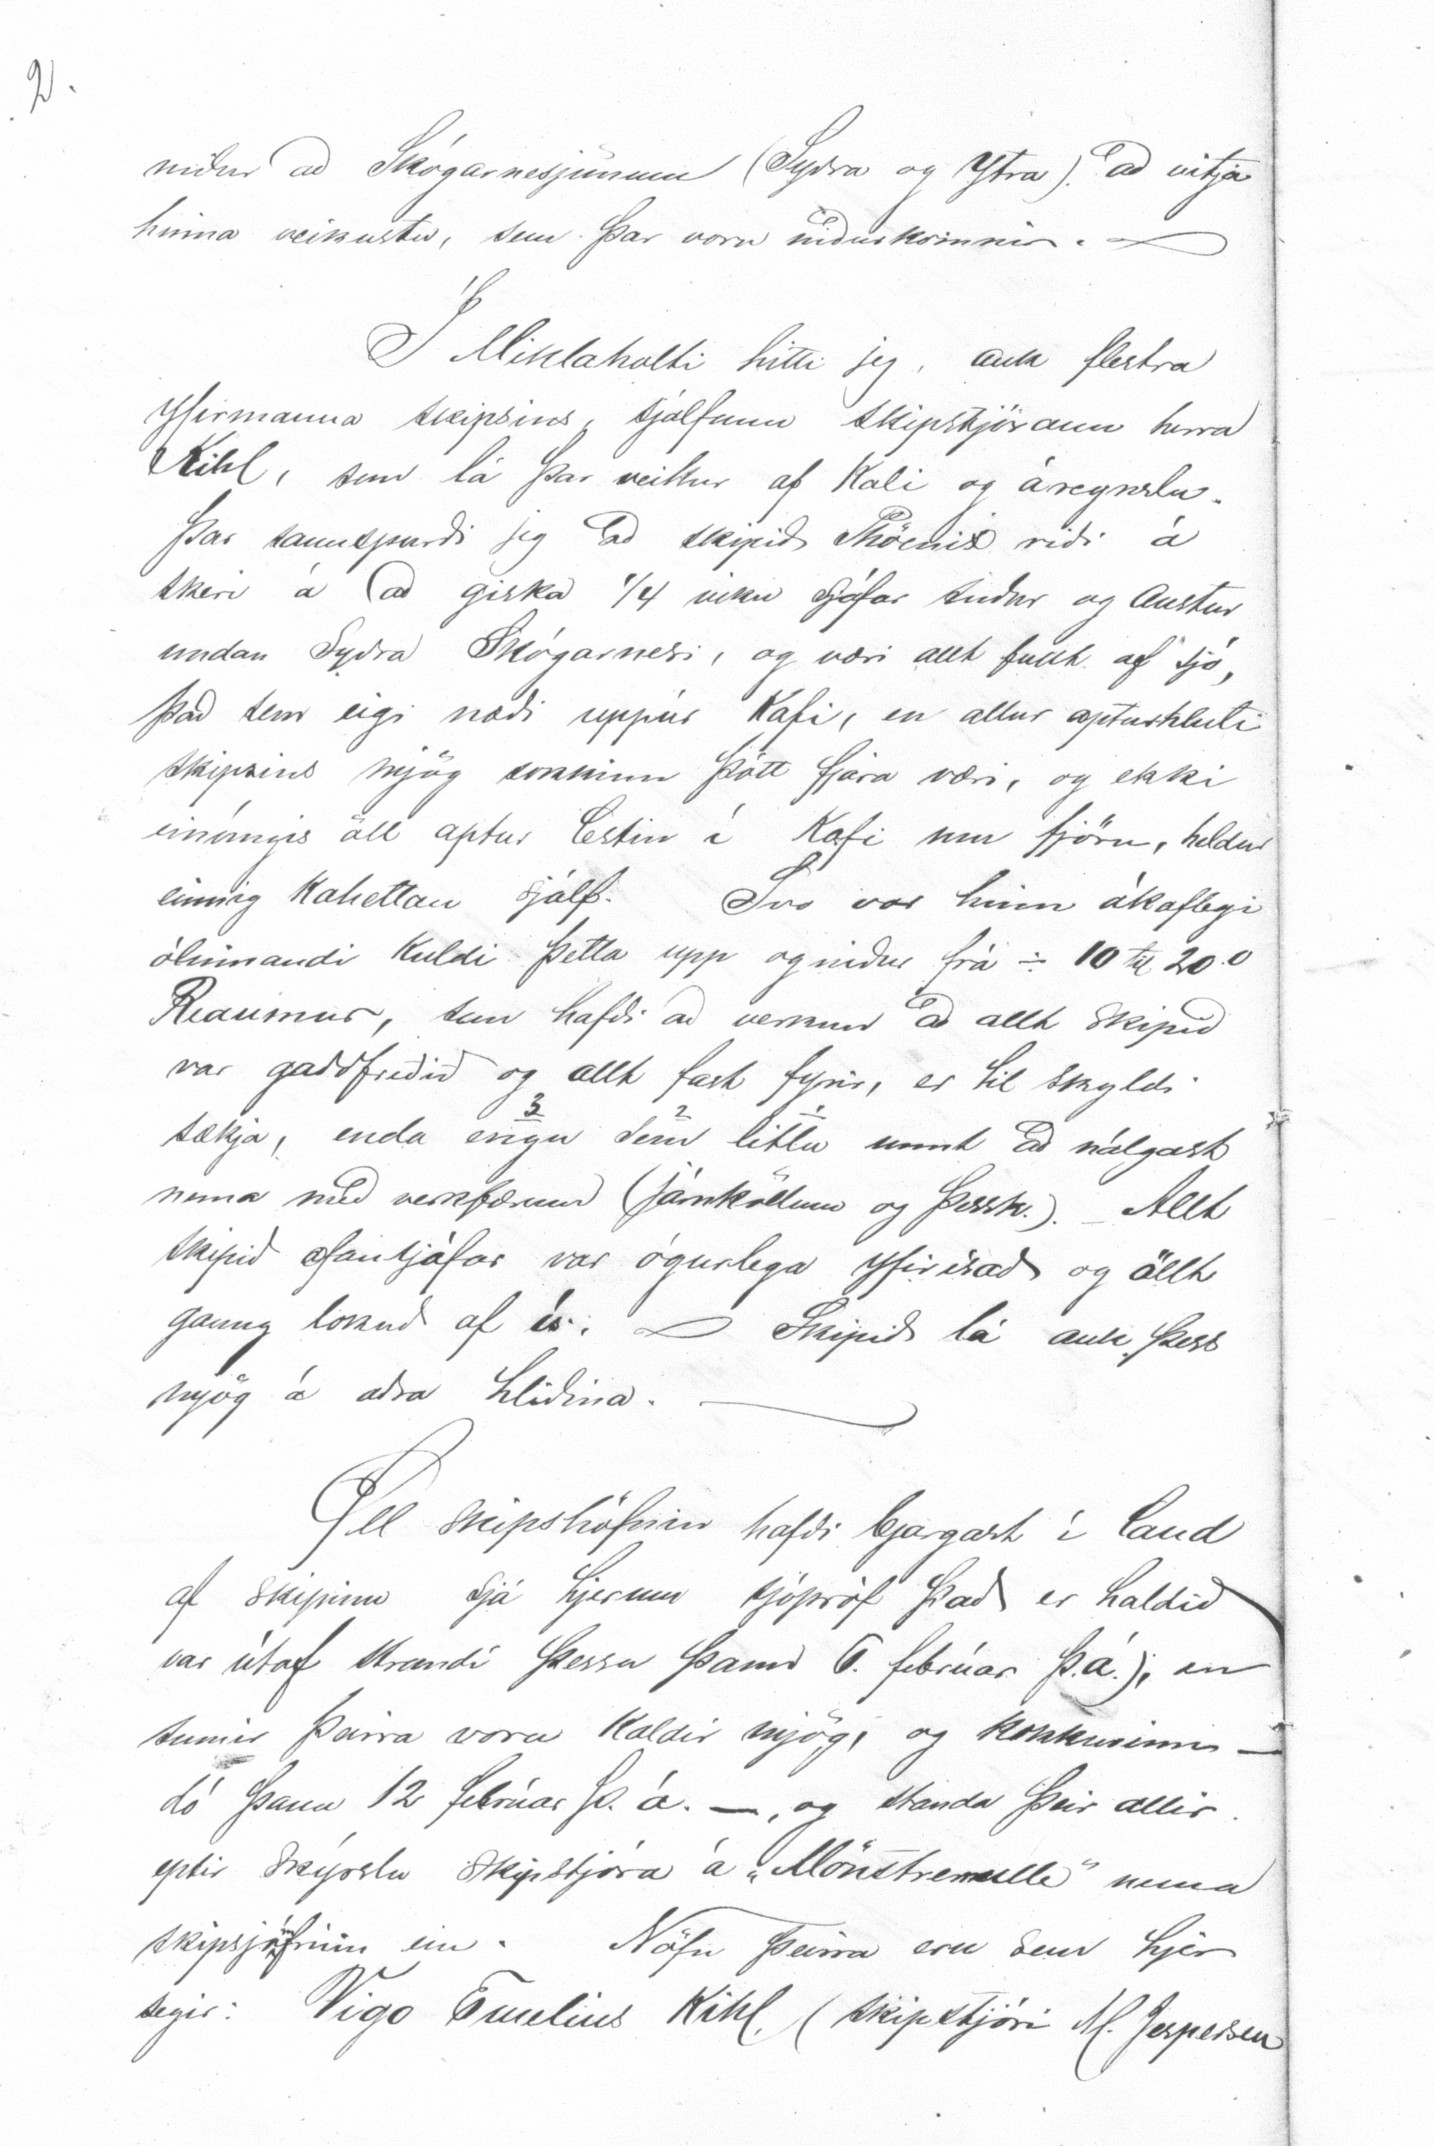 2.
niður að Skógarnesjunum (Syðra og Ytra). að vitja
hinna veikustu, sem þar voru niðurkomnir.
Í Miklaholti hitti jeg, auk flestra
Yfirmanna skipsins, sjálfann skipstjórann herra
Kihl, sem lá þar veikur af kali og áreynslu.
Þar sannspurði jeg að skipið Phönix riði á
skeri á að giska 1/4 viku sjófar suður og austur
undan Syðra Skógarnesi, og væri allt fullt af sjó,
það sem eigi næði uppúr Kafi, en allur apturhluti
skipsins mjög sokkinn þótt fjara væri, og ekki
einúngis öll aptur lestin í Kafi um fjöru, heldur
einnig Kahettan sjálf. Svo var hinn ákaflegi
ólinnandi Kuldi þetta upp og niður frá ÷ 10 til 20.0
Reaumur, sem hafði að verkum að allt skipið
var gaddfreðið og allt fast fyrir, er til skyldi
sækja, enda engu sem litlu unnt að nálgast
nema með verkfærum (járnköllum og þessk.). – Allt
skipið ofansjáfar var ógurlega Yfirísað og öllt
gaung lokuð af ís. Skipið lá auk þess
mjög á aðra hliðina.
Öll skipshöfnin hafði bjargast í land
af skipinu sjá hjerum sjópróf það er haldið
var útaf strandi þessu þann 6. febrúar þ.á.), en
sumir þeirra voru Kaldir mjög, og kokkurinn —
dó þann 12 febrúar þ. á. —, og standa þeir allir
eptir skýrslu skipstjóra á „Mönstrerrulle" nema
skipsjómfrúin ein. Nöfn þeirra eru sem hjer
segir: Vigo Emelius Kihl, (skipstjóri M. Jespersen